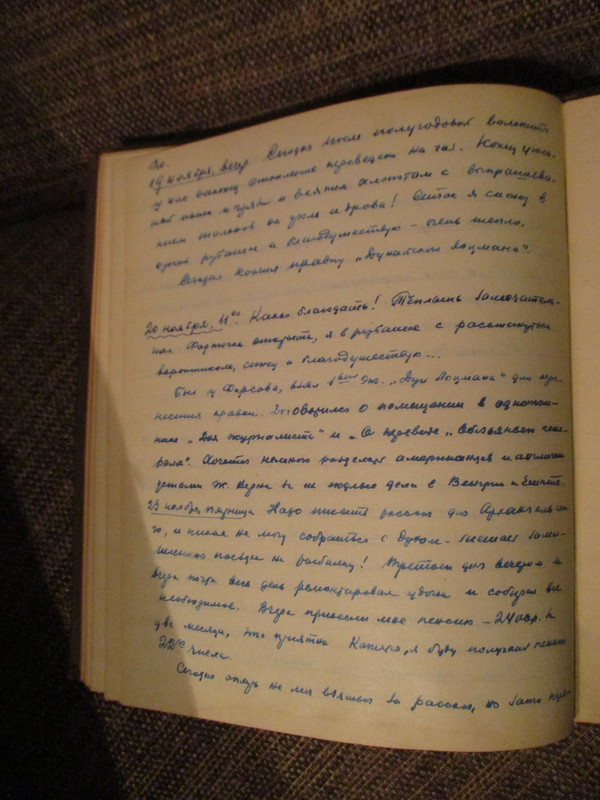 19 ноября, вечер. Сегодня после полугодовой волокиты
у нас наконец отопление переведено на газ. Конец
и всяким хлопотам с выпрашива-
нием талонов на уголь и дрова! Сейчас я сижу в
одной рубашке и благодушествую – очень тепло.
Сегодня кончил правку „Дунайского лоцмана".
20 ноября, 11⁰⁰. Какая благодать! Теплынь замечатель-
ная. Форточка открыта, я в рубашке с расстегнутым
воротником, сижу и благодушествую...
Был у Фирсова, взял 1 экз. „Дун. Лоцмана" для пере-
несения правки. Договорился о помещении в однотом-
нике „Дня журналиста" и о переводе „Обезьяньего гене-
рала". Хочется немного разделать американцев и англичан
устами Ж. Верна за их подлые дела в Венгрии и Египте.
23 ноября, пятница. Надо писать рассказ для
го, и никак не могу собраться с духом – мешает замы-
шленная поездка на рыбалку! Третьего дня вечером и
вчера почти весь день ремонтировал удочки и собирал все
необходимое. Вчера принесли мне пенсию – 2400 р. за
два месяца, это приятно. Кажется, я буду получать пенсию
22го числа.
Сегодня опять не мог взяться за рассказ, но зато